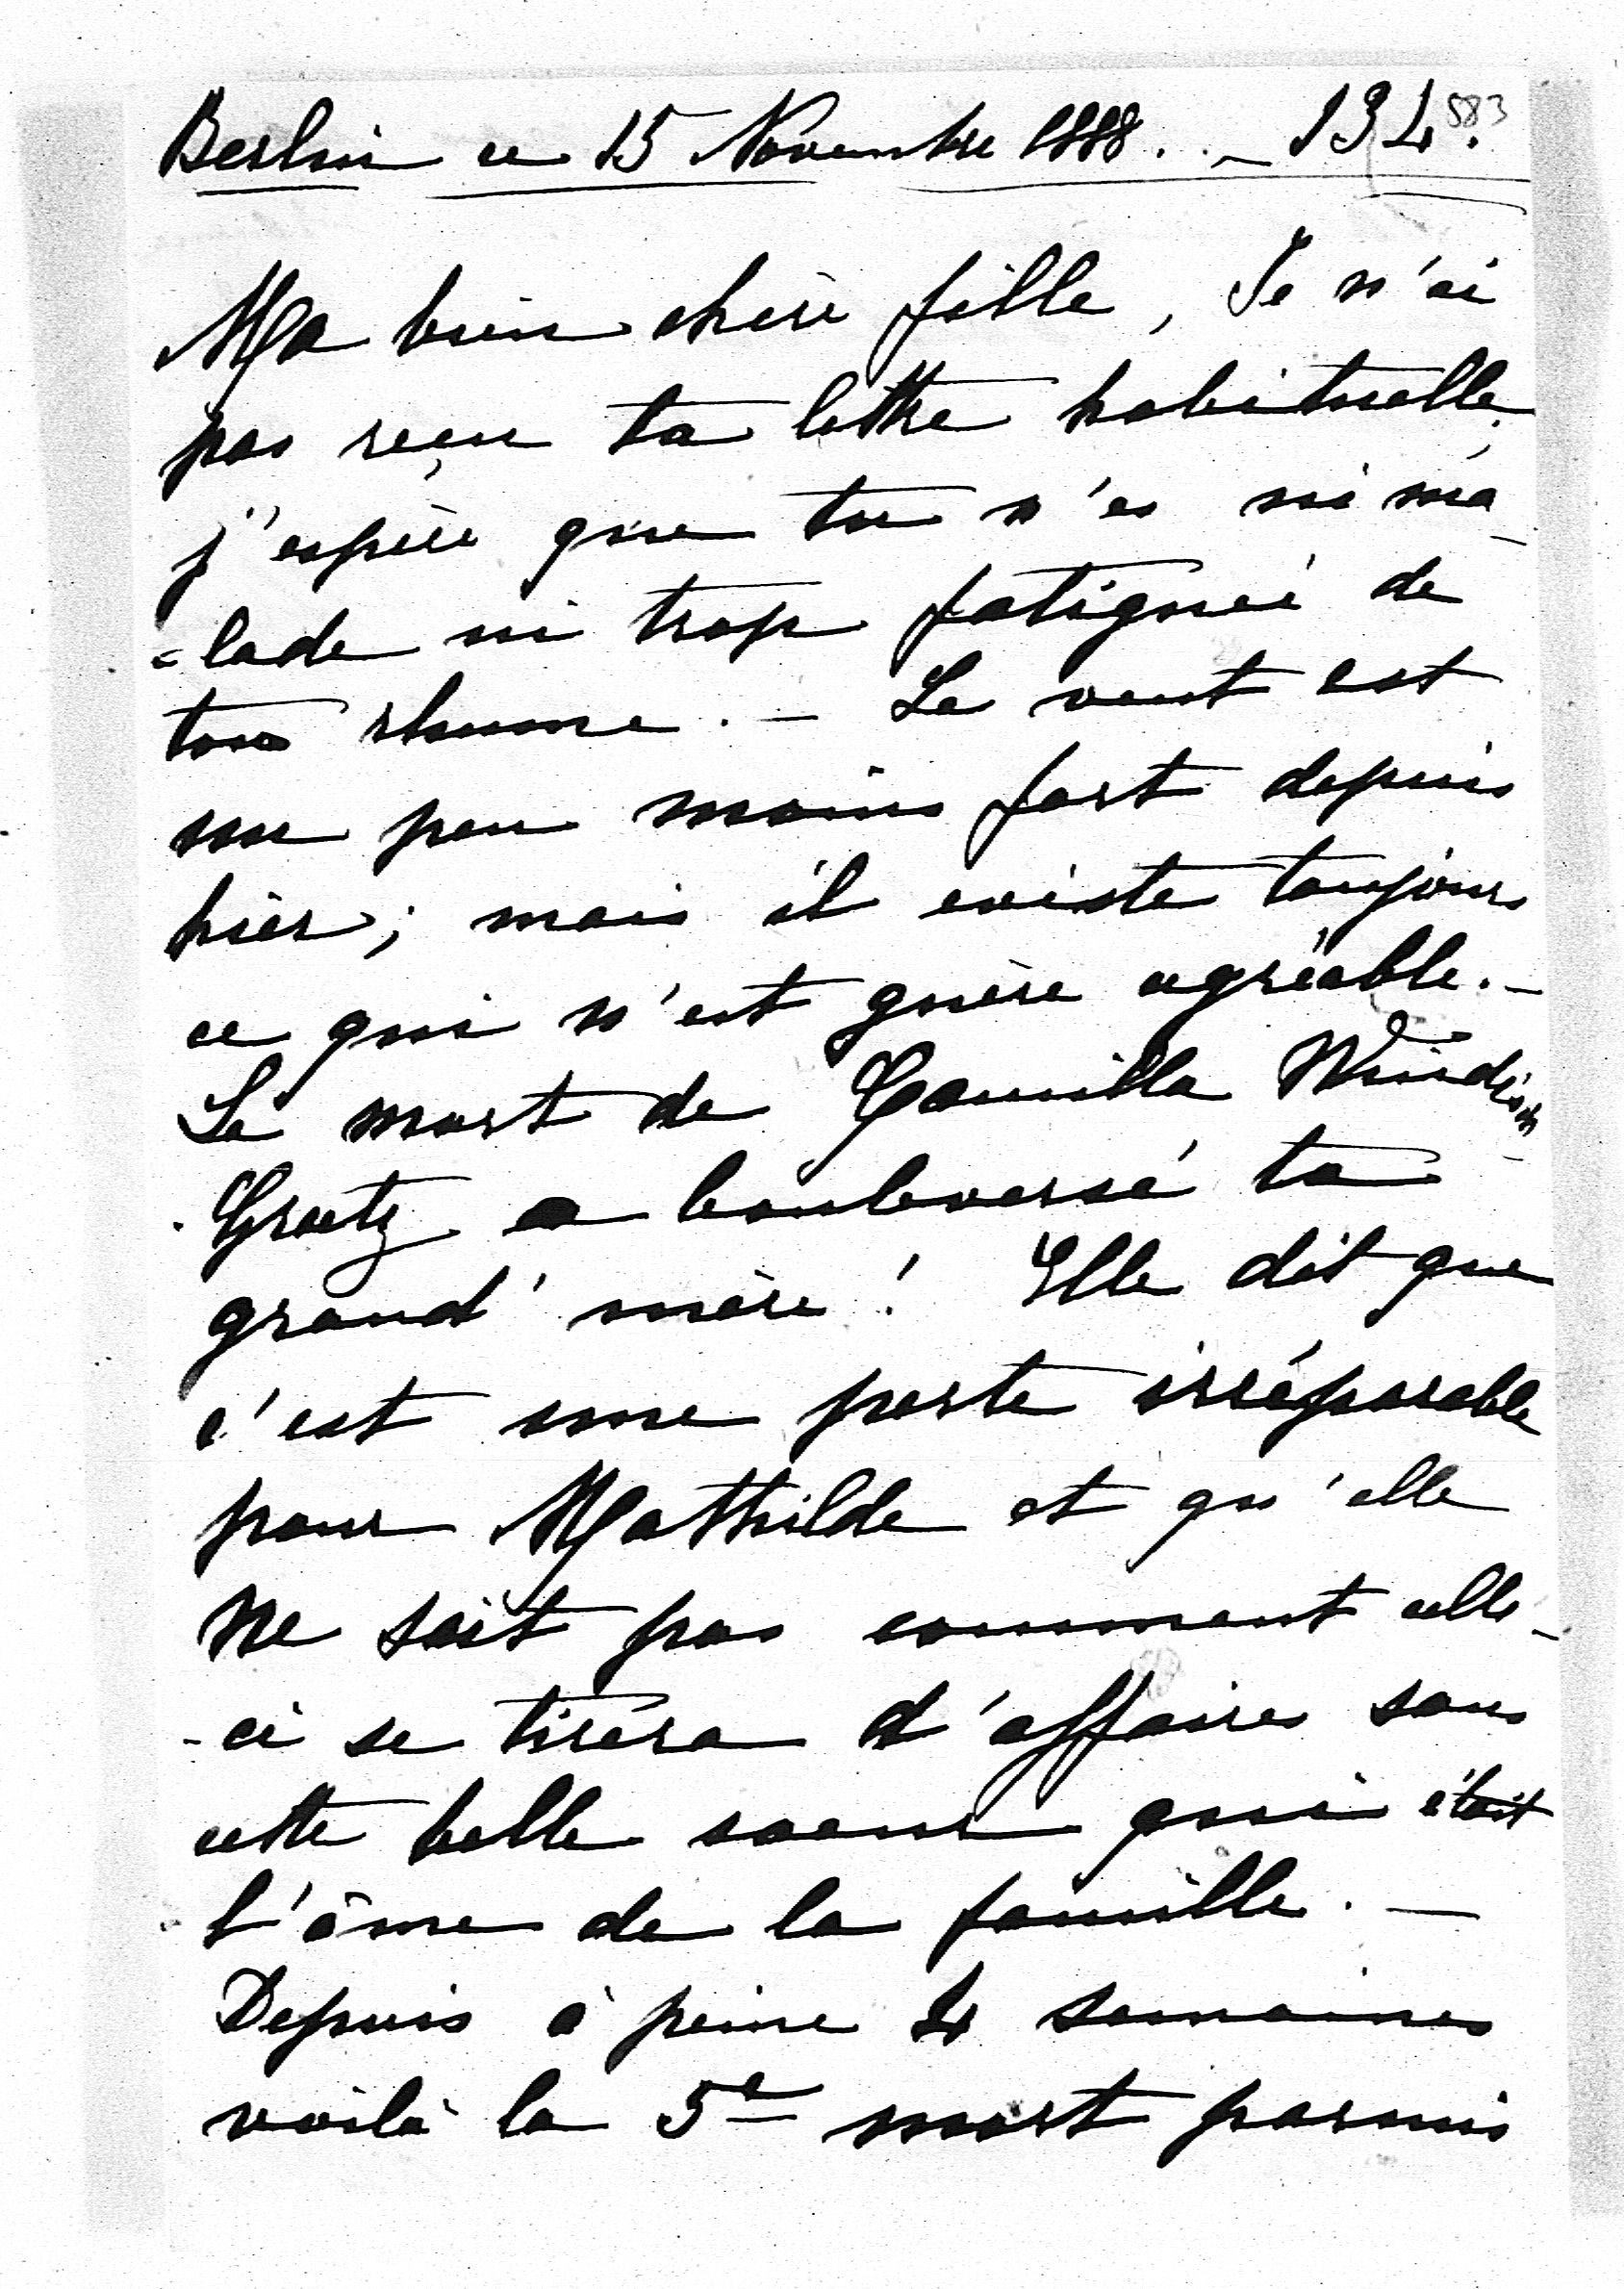 Berlin ce 15 Novembre 1888. . – 134.
583
Ma bien chère fille, Je n'ai
pas reçu ta lettre habituelle.
j'espère que tu n'es ni ma-
=lade ni trop fatiguée de
ton rhume. – Le vent est
un peu moins fort depuis
hier; mais il existe toujours
ce qui n'est guère agréable. –
La mort de Camilla Windisch
Graetz a bouleversé ta
grand'mère! Elle dit que
c'est une perte irréparable
pour Mathilde et qu'elle
ne sait pas comment celle-
-ci se tirera d'affaires sans
cette belle soeur qui était
l'âme de la famille. –
Depuis à peine 4 semaines
voilà la 5e mort parmis